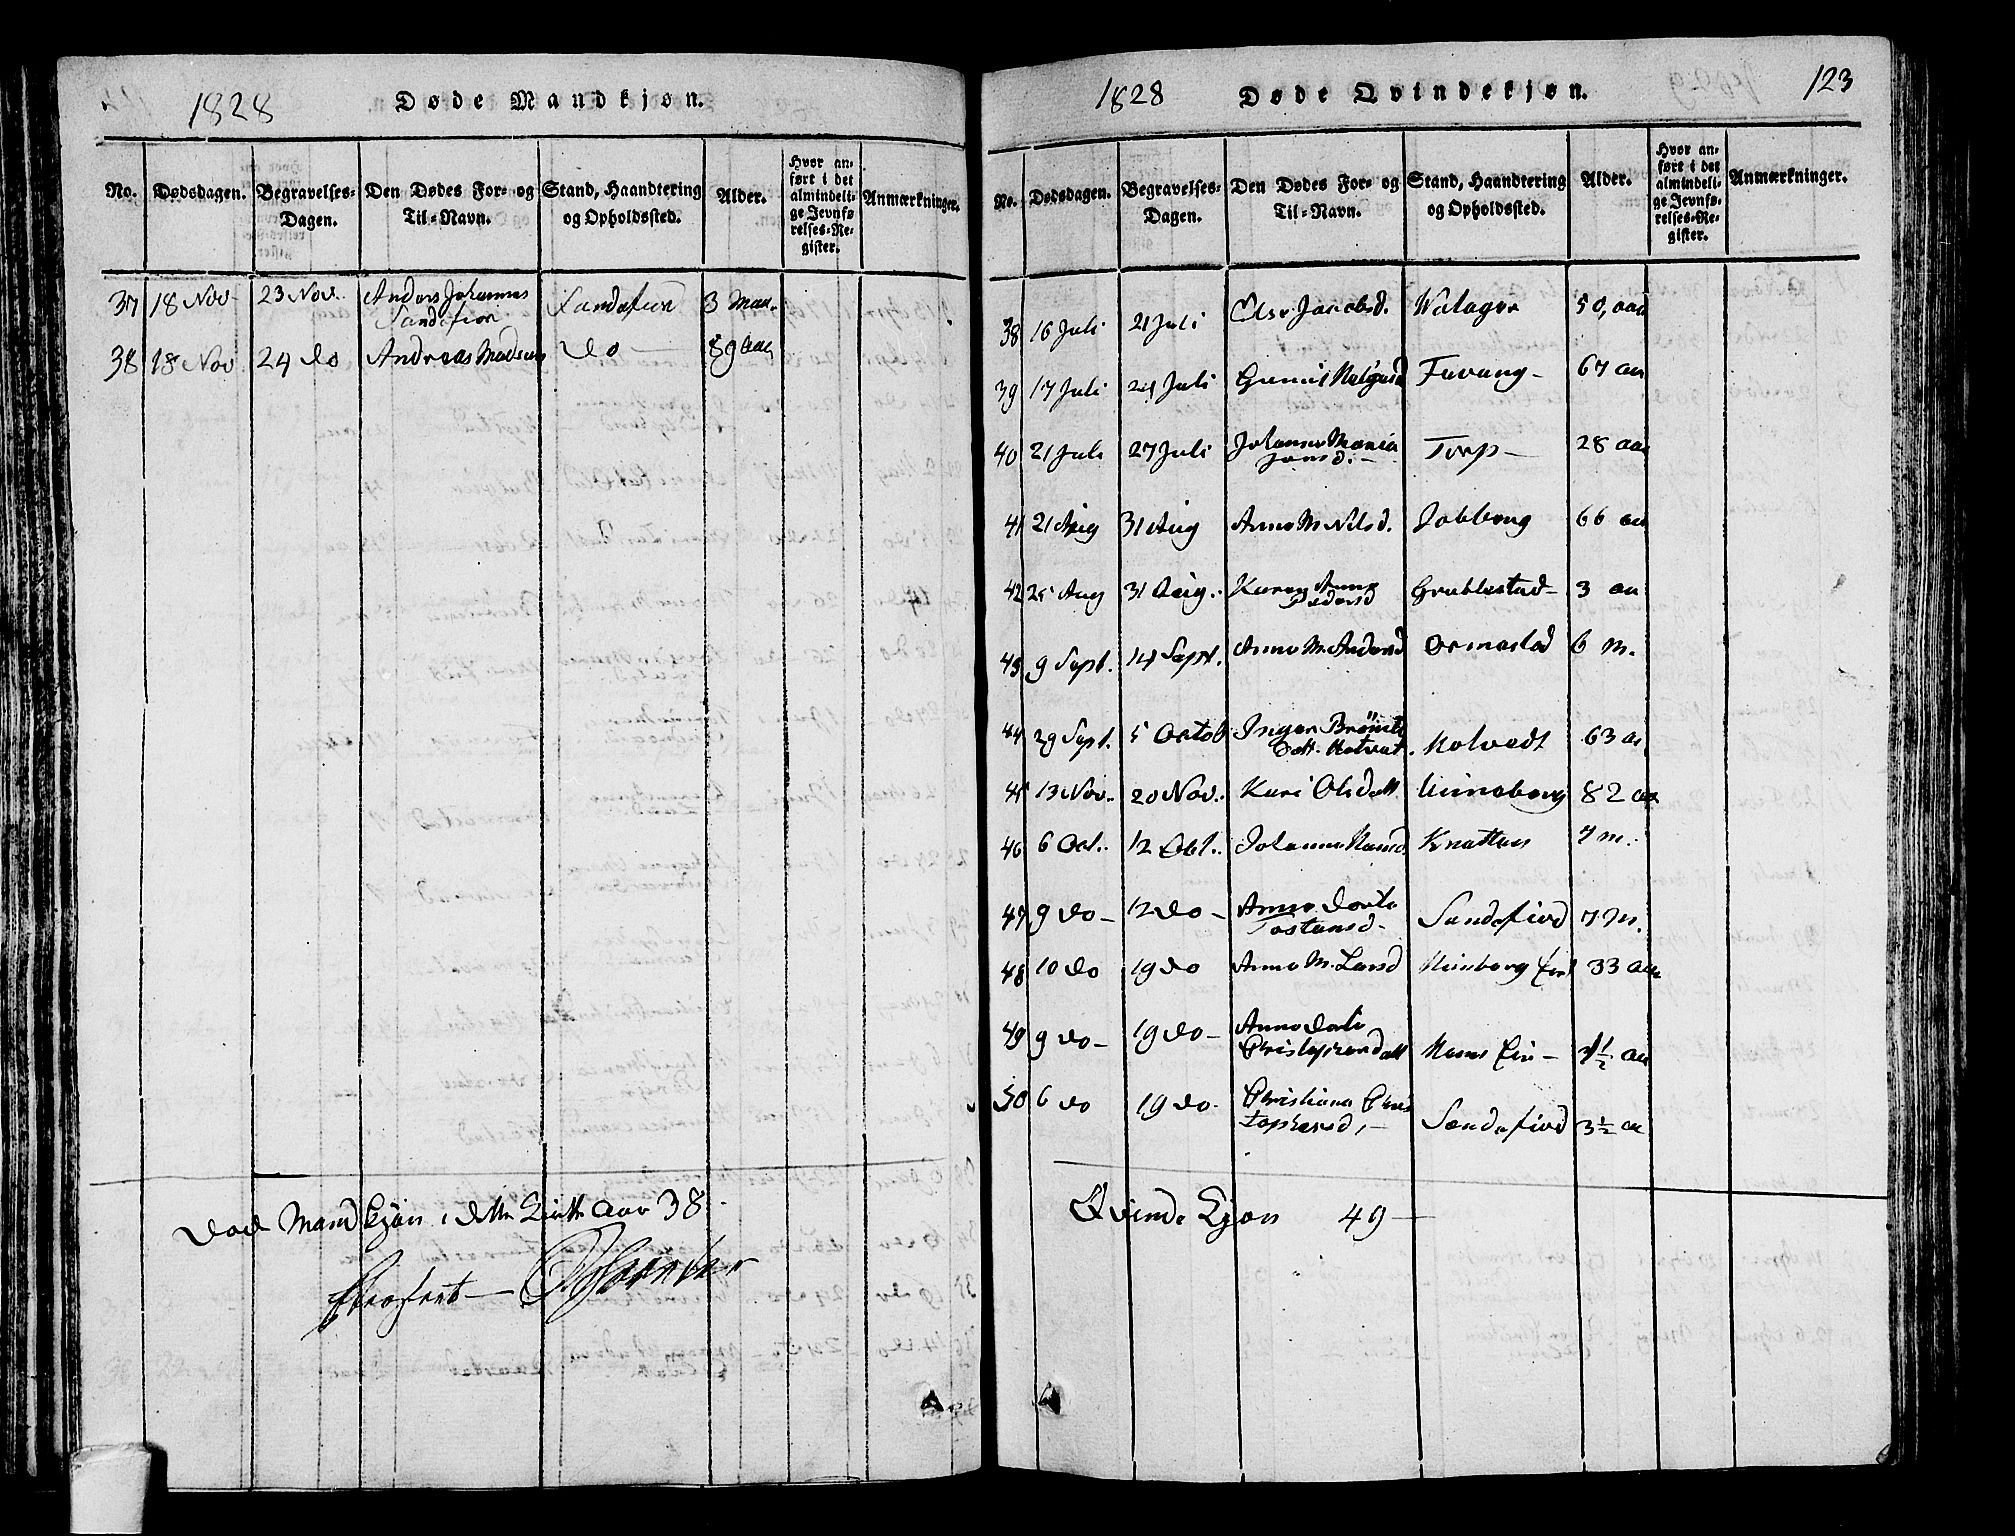 1828 Døde Mandkjøn.
No. Dødsdagen. Begravelses-Dagen. Den Dødes For- og Til-Navn. Stand, Haandtering og Opholdssted. Alder. Hvor anført i det almindelige Jevnførelses-Register. Anmærkninger.
37 18 Nov 23 Nov. Anders Johannes Sandefior Sandefior 3 Maa.
38 18 Nov 24 do Andreas Madsen do 89 aar
Død Mand Kjøn i dette Kirke Aar 38
1828 Døde Qvindekjøn. 123
No. Dødsdagen. Begravelses-Dagen. Den Dødes For- og Til-Navn. Stand, Haandtering og Opholdssted. Alder. Hvor anført i det almindelige Jevnførelses-Register. Anmærkninger.
38 16 Juli 21 Juli Else Jacobsd. 50, aar
39 17 Juli 24 Juli Fevang 67 aar
40 21 Juli 27 Juli Johanne Maria Torp 28 aar
41 21 Aug 31 Aug Anne M. Nilsd. Jobberg 66 aar
42 25 Aug 31 Aug. Karen Anne Pedersd Grubbestad 3 aar
43 9 Sept. 14 Sept. Anne M. Andersd Ormestad 6 m.
44 29 Sept. 5 Octob Inger Datt. Holvedt 63 a
45 13 Nov. 20 Nov. Kari Olsdatt 82 aar
46 6 Oct. 12 Obt. Johanne Hansd. Knatten 7 m.
47 9 do 12 do Anne Dorte Tostensd Sandefiord 7 m.
48 10 do 19 do Anne M. Larsd 33 aar
49 9 do 19 do Anne Dorte Christophersdatt 3½ aar
50 6 do 19 do Christiane Christophersd, Sandefiord 3½ a
Qvinde Kjøn 49